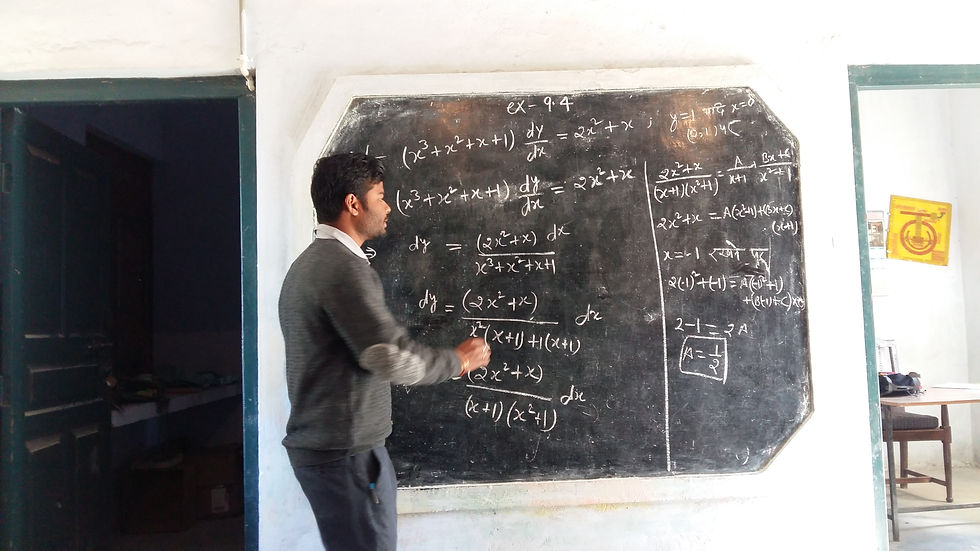 ex - 9.4
(x³+x²+x+1) dy/dx = 2x²+x ; y=1 यदि x=0
(0,1) पर
(x³+x²+x+1) dy/dx = 2x²+x
⇒ dy = (2x²+x) dx / x³+x²+x+1
dy = (2x²+x) / x²(x+1)+1(x+1) dx
= (2x²+x) / (x+1)(x²+1) dx
2x²+x / (x+1)(x²+1) = A / x+1 + Bx+C / x²+1
2x²+x = A(x²+1)+(Bx+C)
(x+1)
x=-1 रखने पर
2(-1)²+(-1) = A(-1)²+1)
+(B(-1)+C)
2-1 = 2A
A = 1/2